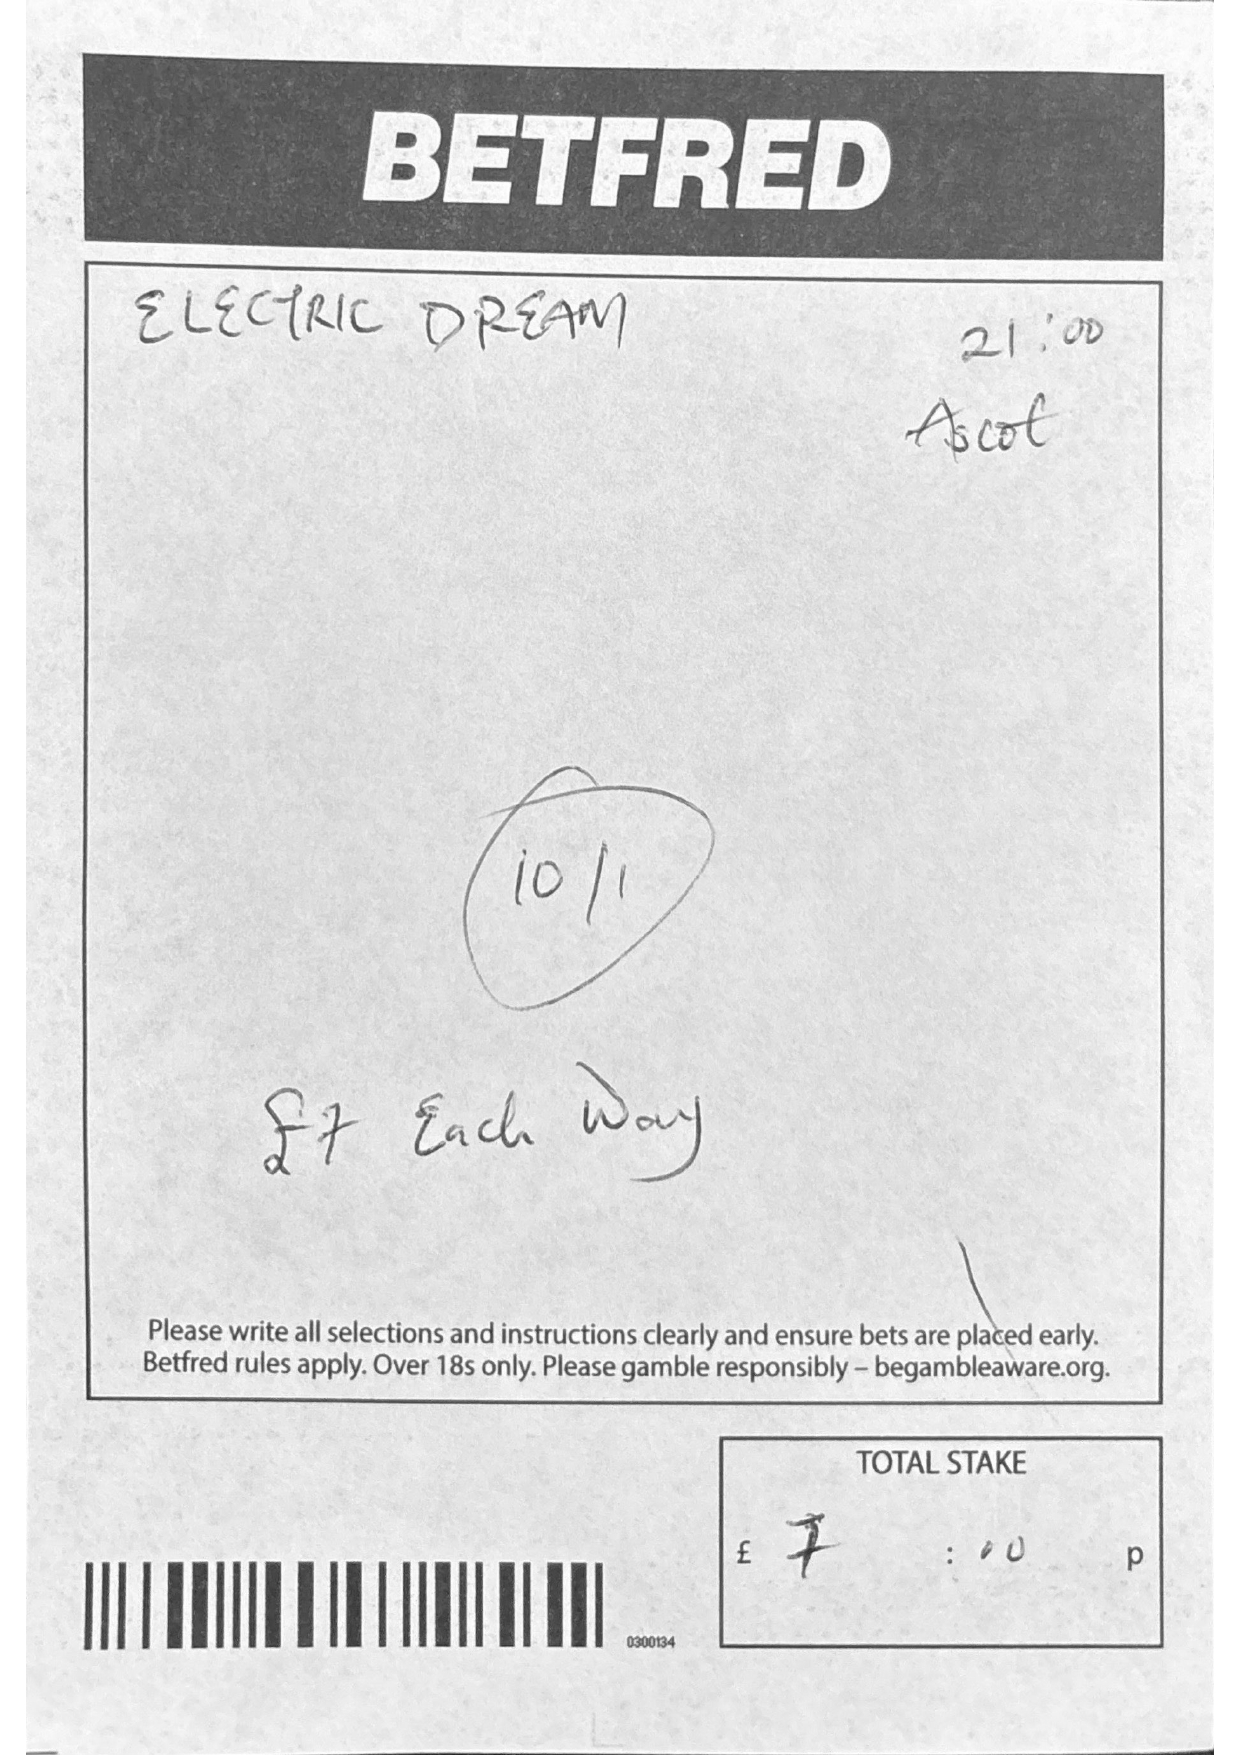 BETFRED
ELECTRIC DREAM
21:00
Ascot
10/1
£7 Each Way
Please write all selections and instructions clearly and ensure bets are placed early.
Betfred rules apply. Over 18s only. Please gamble responsibly – begambleaware.org.
TOTAL STAKE
£ 7 : 00 p
0300134